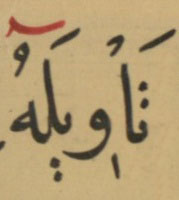 تَأْوِيلَهُ